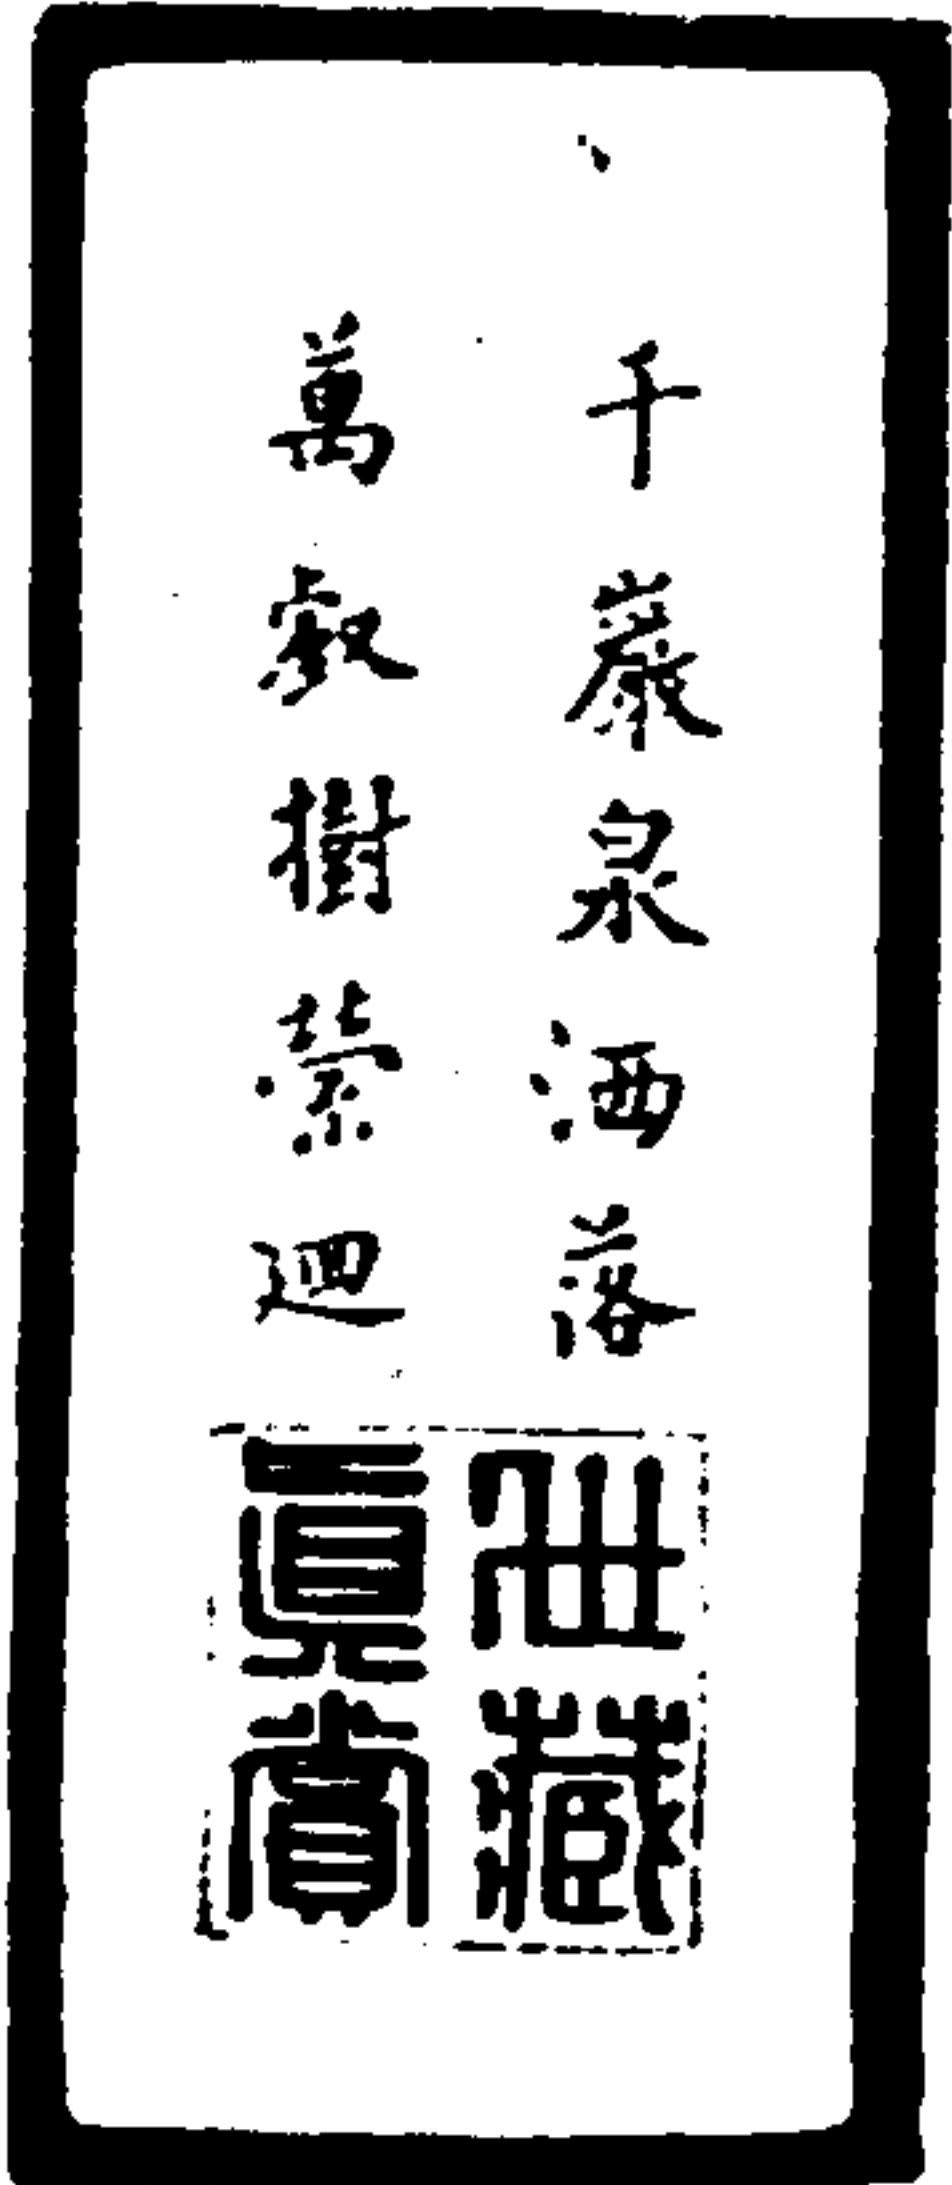 千巖泉洒落
萬壑樹縈迴
世藏
真賞